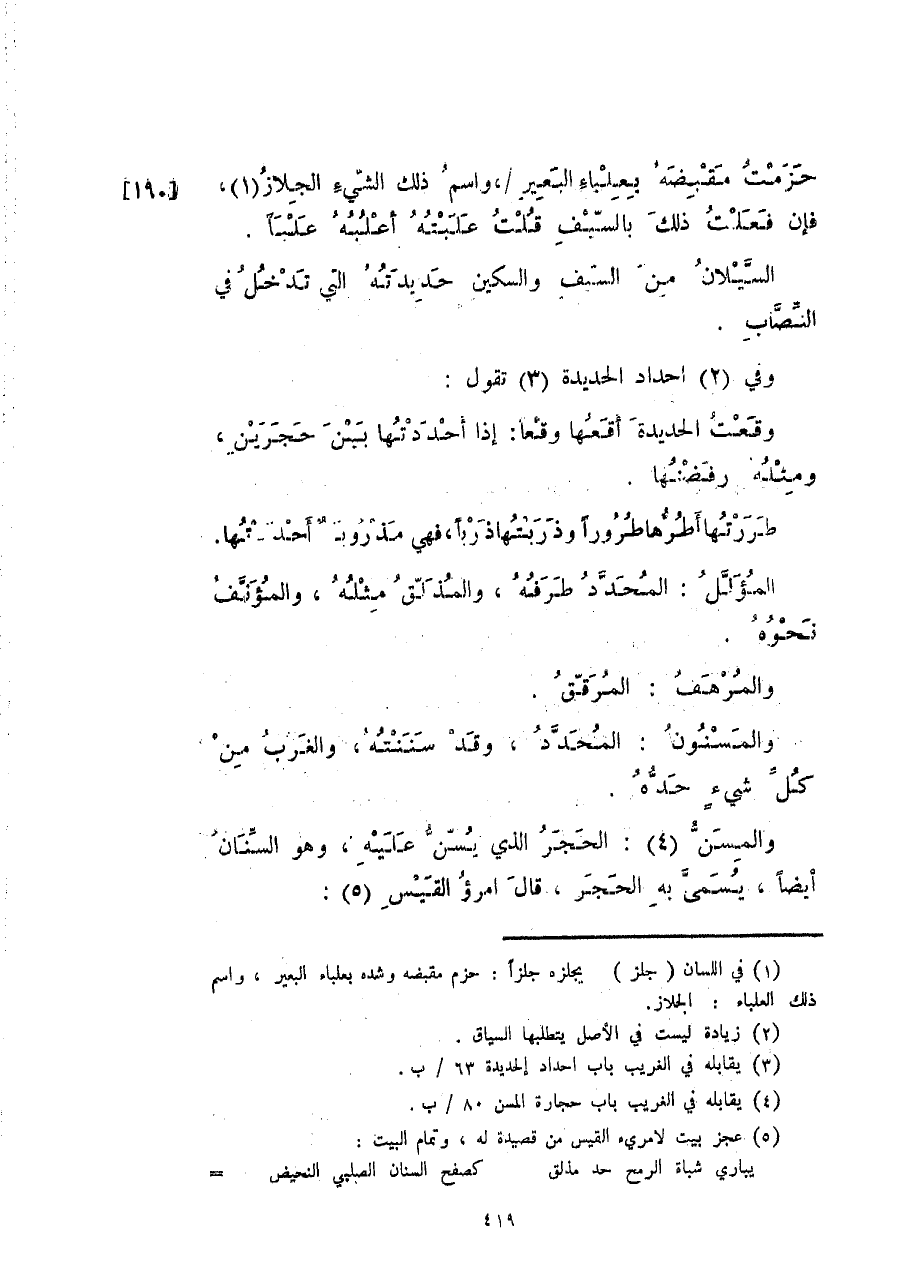 حَزَمْتُ مَقْبِضَهُ بِعِلْباءِ البَعِيرِ /،واسمُ ذلك الشّيءِ الجِلازُ(١)، [١٩٠]
فإن فَعَلْتُ ذلكَ بالسّيْفِ قُلْتُ عَلَبْتُهُ أعْلُبُهُ عَلْبَاً .
السَّيْلانُ مِنَ السّيفِ والسكين حَدِيدَتُهُ التي تَدْخُلُ في
النِّصَّابِ .
وفي (٢) احداد الحديدة (٣) تقول :
وقَعْتُ الحديدةَ أقَعُها وقْعا: إذا أحْدَدْتُها بَيْنَ حَجَرَيْنِ ،
ومِثْلُهُ رفَضْتُها .
طَرَرْتُها أَطُرُّها طُروراً وذَرَبْتُها ذَرْباً، فهي مَذْرُوبَةٌ أحْدَدْتُها.
المُؤَلَّلُ : المُحَدَّدُ طَرَفُهُ ، والمُذَلّقُ مِثْلُهُ ، والمُؤَنَّفُ
نَحْوُهُ .
والمُرْهَفُ : المُرَقّقُ .
والمَسْنُونُ : المُحَدَّدُ ، وقَدْ سَنَنْتُهُ ، والغَرَبُ مِنْ
كُلِّ شيءٍ حَدُّهُ .
والمِسَنُّ (٤) : الحَجَرُ الذي يُسّنُّ عَلَيْهِ ، وهو السِّنَانُ
أيضاً ، يُسَمىَّ بهِ الحَجَر ، قالَ امرؤُ القَيْسِ (٥) :
(١) في اللسان ( جلز ) يجلزه جلزاً : حزم مقبضه وشده بعلباء البعير ، واسم
ذلك العلباء : الجلاز.
(٢) زيادة ليست في الأصل يتطلبها السياق .
(٣) يقابله في الغريب باب احداد الحديدة ٦٣ / ب .
(٤) يقابله في الغريب باب حجارة المسن ٨٠ / ب .
(٥) عجز بيت لامريء القيس من قصيدة له ، وتمام البيت :
يباري شباة الرمح حد مذلق كصفح السنان الصلبي النحيض =
٤١٩